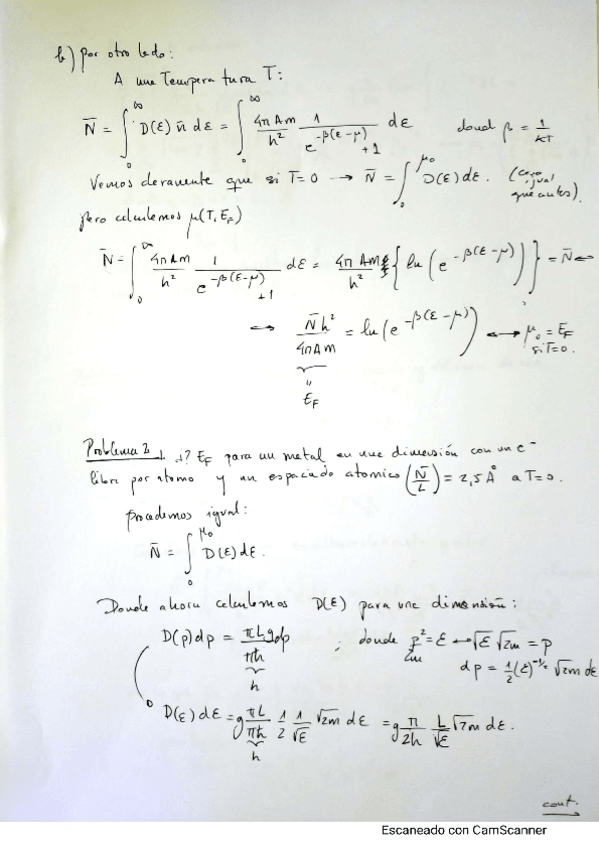 b) por otro lado:
A una Temperatura T:
N̄ = ∫₀^∞ D(ε) n̄ dε = ∫₀^∞ 4πAm/h² 1/(e^{-β(ε-μ)}+1) dε donde β = 1/kT
Vemos claramente que si T=0 → N̄ = ∫₀^{μ₀} D(ε)dε. (caso igual que antes).
pero calculemos μ(T, E_F)
N̄ = ∫₀^∞ 4πAm/h² 1/(e^{-β(ε-μ)}+1) dε = 4πAm/h² { ln(e^{-β(ε-μ)}) } = N̄ ↔
↔ N̄h²/4πAm = ln(e^{-β(ε-μ)}) ↔ μ₀ = E_F si T=0.
"
E_F
Problema 2. ¿? E_F para un metal en una dimensión con un e⁻
libre por átomo y un espaciado atomico (N̄/L) = 2,5 Å a T=0.
procedemos igual:
N̄ = ∫₀^{μ₀} D(ε)dε.
Donde ahora calculemos D(ε) para una dimensión:
D(p)dp = πLgdp/πħ ; donde p²/2m = ε ↔ √ε √2m = p
h
dp = ½(ε)^{-½} √2m dε
D(ε)dε = g πL/πħ 1/2 1/√ε √2m dε = g π/2h L/√ε √2m dε.
h
cont.
Escaneado con CamScanner